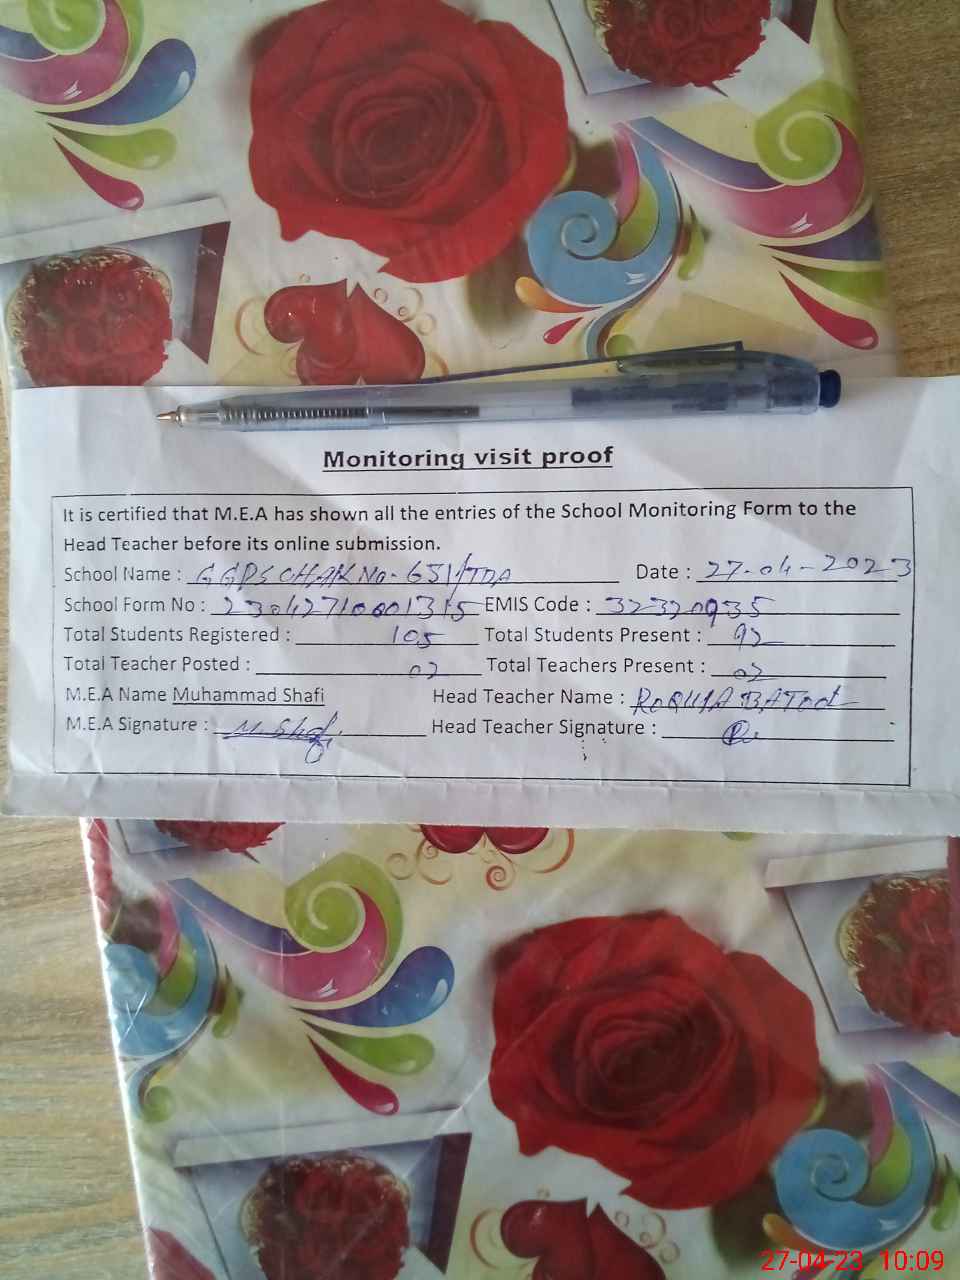 Monitoring visit proof
It is certified that M.E.A has shown all the entries of the School Monitoring Form to the
Head Teacher before its online submission.
School Name : GGPS CHAK No. 651/TDA Date : 27-04-2023
School Form No : 230427100001315 EMIS Code : 32320935
Total Students Registered : 105 Total Students Present : 92
Total Teacher Posted : 02 Total Teachers Present : 02
M.E.A Name Muhammad Shafi Head Teacher Name : ROQUIA BATOOL
M.E.A Signature : M. Shafi Head Teacher Signature :
27-04-23 10:09